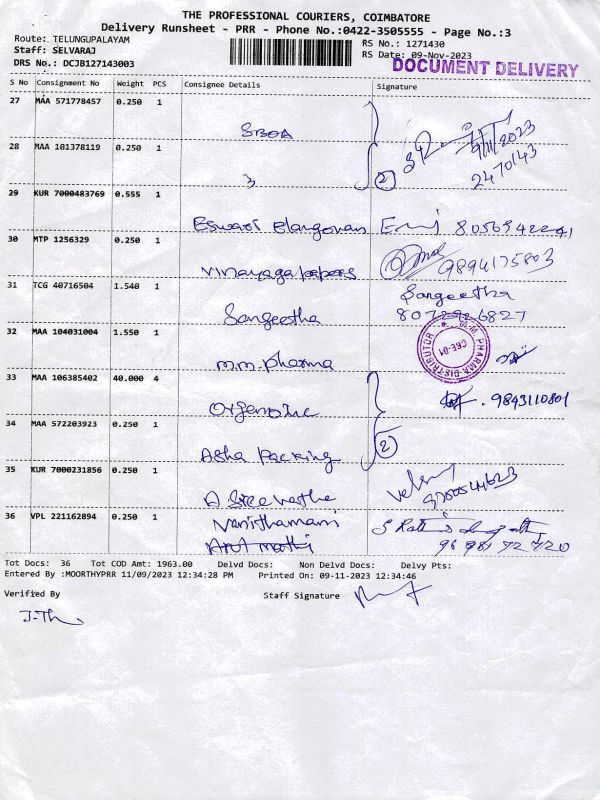 THE PROFESSIONAL COURIERS, COIMBATORE
Delivery Runsheet - PRR - Phone No.:0422-3505555 - Page No.:3
Route: TELUNGUPALAYAM
RS No.: 1271430
Staff: SELVARAJ
RS Date: 09-Nov-2023
DRS No.: DCJB127143003
DOCUMENT DELIVERY
S No Consignment No Weight PCS Consignee Details Signature
27 MAA 571778457 0.250 1
SBOA
9/11/2023
28 MAA 101378119 0.250 1
2470143
2
29 KUR 7000483769 0.555 1
Eswari Elangovan 8056942241
30 MTP 1256329 0.250 1
Vinayaga papers 9894175803
31 TCG 40716504 1.540 1
Sangeetha
Sangeetha 8072926827
32 MAA 104031004 1.550 1
M.M. Pharma
PHARMA DISTRIBUTOR
CBE-01
33 MAA 106385402 40.000 4
9843110801
34 MAA 572203923 0.250 1
2
Asha Packing
35 KUR 7000231856 0.250 1
A Sreevatha
36 VPL 221162894 0.250 1
Vanithamani
Tot Docs: 36 Tot COD Amt: 1963.00 Delvd Docs: Non Delvd Docs: Delvy Pts:
Entered By :MOORTHYPRR 11/09/2023 12:34:28 PM Printed On: 09-11-2023 12:34:46
Verified By Staff Signature